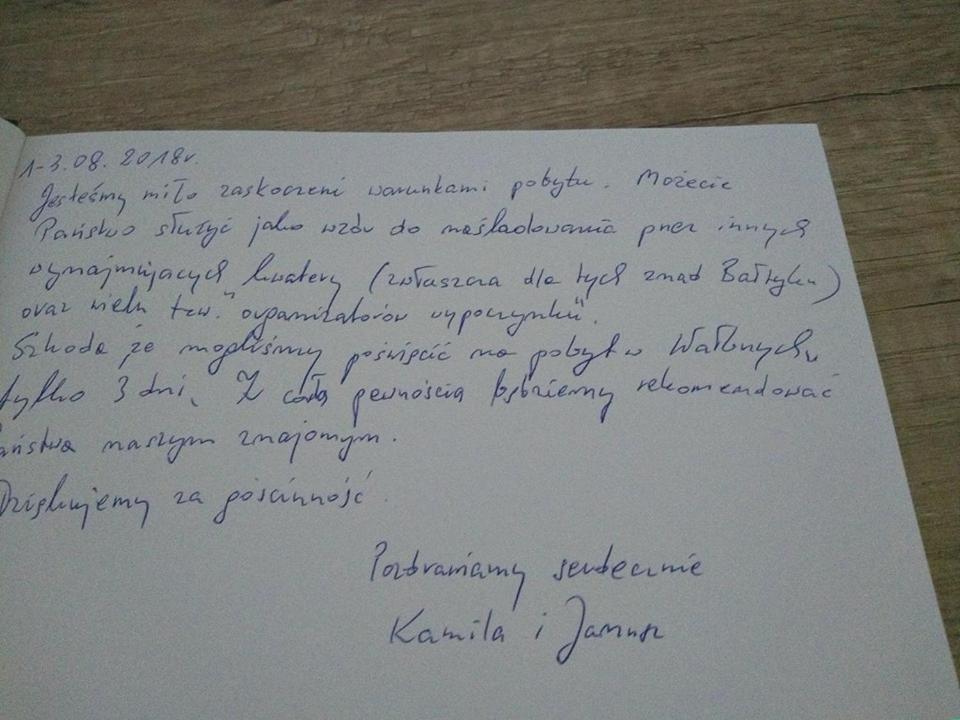 1-3.08.2018r.
Jesteśmy miło zaskoczeni warunkami pobytu. Możecie
Państwo służyć jako wzór do naśladowania przez innych
wynajmujących kwatery (zwłaszcza dla tych znad Bałtyku)
oraz wielu tzw. "organizatorów wypoczynku".
Szkoda że mogliśmy poświęcić na pobyt w
tylko 3 dni. Z całą pewnością będziemy rekomendować
aństwa naszym znajomym.
Dziękujemy za gościnność.
Pozdrawiamy serdecznie
Kamila i Janusz